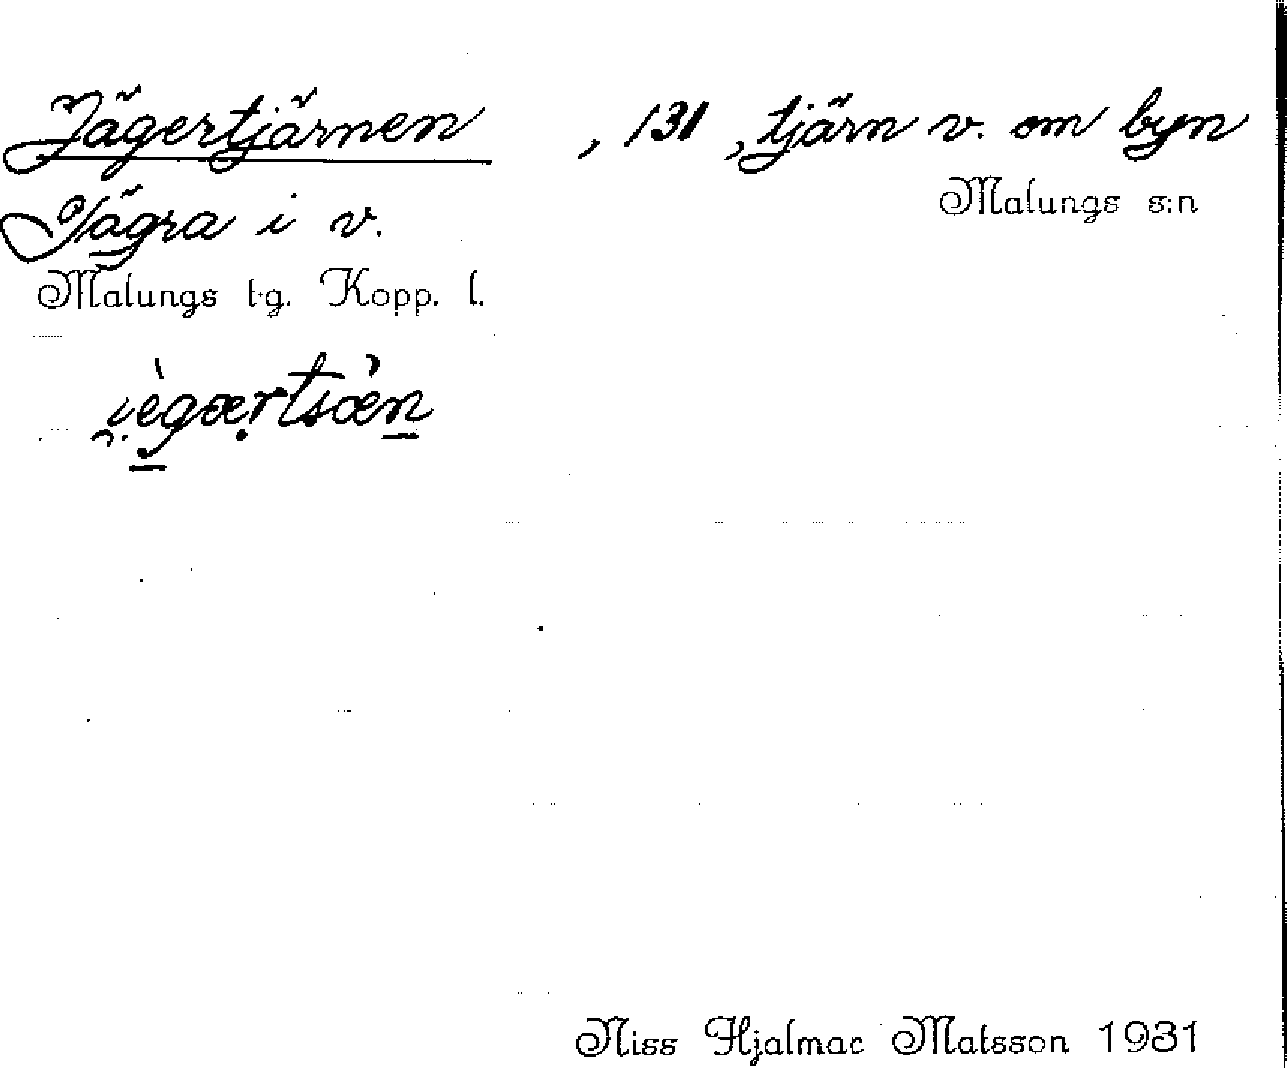 Jägertjärnen , 131 , tjärn v. om byn
Jägra i v. Malungs s:n
Malungs t.g. Kopp. l.
Niss Hjalmar Matsson 1931